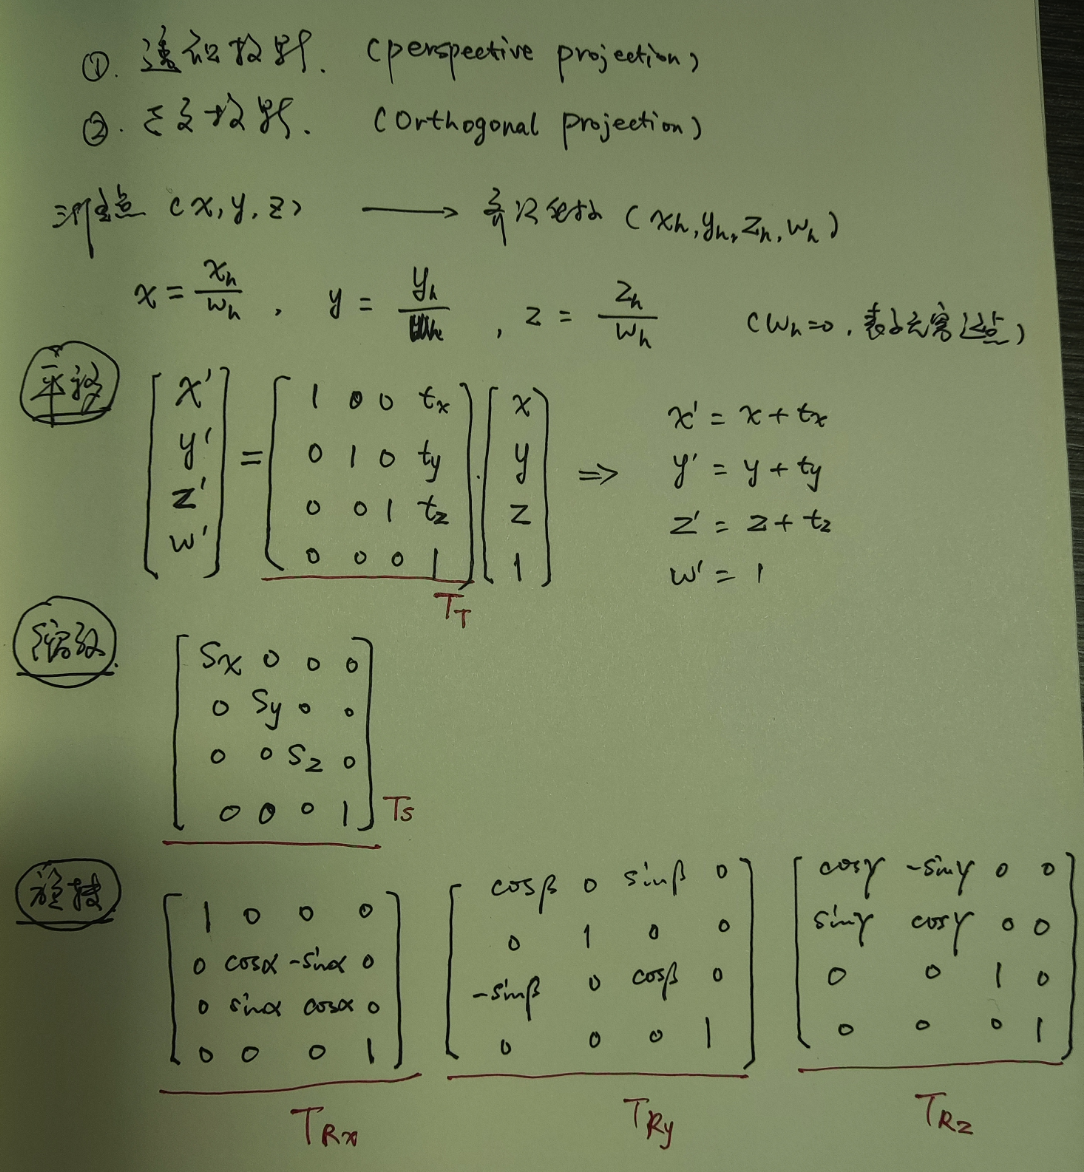 ①. 透视投影. (perspective projection)
②. 正交投影. (Orthogonal projection)
三维点 (x, y, z) ⟶ 齐次坐标 (xₕ, yₕ, zₕ, wₕ)
x = xₕ/wₕ , y = yₕ/wₕ , z = zₕ/wₕ (wₕ=0, 表示无穷远点)
平移
[x' y' z' w'] = [1 0 0 tx; 0 1 0 ty; 0 0 1 tz; 0 0 0 1] · [x y z 1] ⇒
x' = x + tx
y' = y + ty
z' = z + tz
w' = 1
T_T
缩放.
Sx 0 0 0
0 Sy 0 0
0 0 Sz 0
0 0 0 1
Ts
旋转
1 0 0 0
0 cosα -sinα 0
0 sinα cosα 0
0 0 0 1
T_Rx
cosβ 0 sinβ 0
0 1 0 0
-sinβ 0 cosβ 0
0 0 0 1
T_Ry
cosγ -sinγ 0 0
sinγ cosγ 0 0
0 0 1 0
0 0 0 1
T_Rz